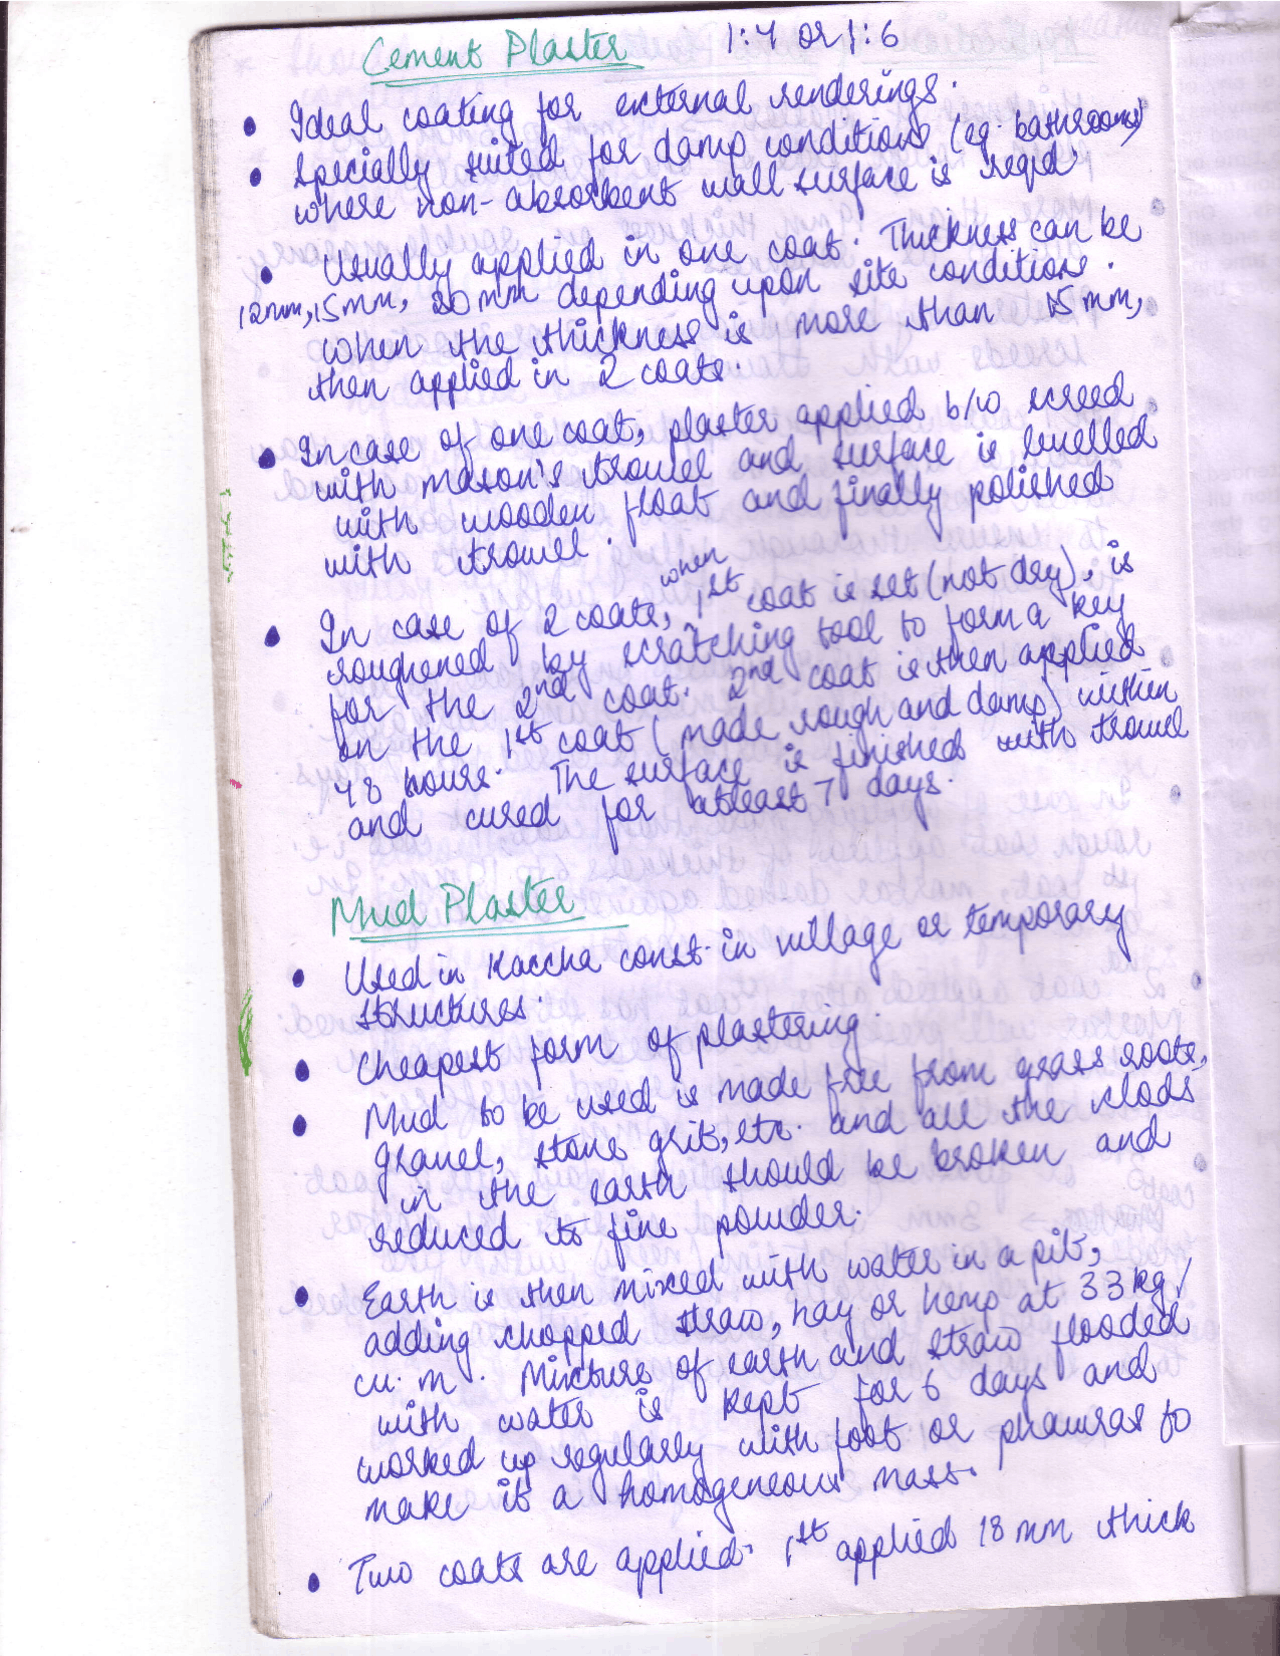 Cement Plaster 1:4 or 1:6
• Ideal coating for external renderings.
• Specially suited for damp conditions (eg. bathrooms)
where non-absorbent wall surface is reqd
• Usually applied in one coat. Thickness can be
12mm, 15mm, 20mm depending upon site conditions.
when the thickness is more than 15mm,
then applied in 2 coats.
• In case of one coat, plaster applied b/w screed
with mason's trowel and surface is levelled
with wooden float and finally polished
with trowel.
• In case of 2 coats, when 1st coat is set (not dry), is
roughened by scratching tool to form a key
for the 2nd coat. 2nd coat is then applied
on the 1st coat (made rough and damp) within
48 hours. The surface is finished with trowel
and cured for atleast 7 days.
Mud Plaster
• Used in Kaccha const. in village or temporary
structures.
• Cheapest form of plastering.
• Mud to be used is made free from grass roots,
gravel, stone grit, etc. and all the clods
in the earth should be broken and
reduced to fine powder.
• Earth is then mixed with water in a pit,
adding chopped straw, hay or hemp at 33 kg/
cu.m. Mixture of earth and straw flooded
with water is kept for 6 days and
worked up regularly with foot or phawras to
make it a homogeneous mass.
• Two coats are applied. 1st applied 18 mm thick